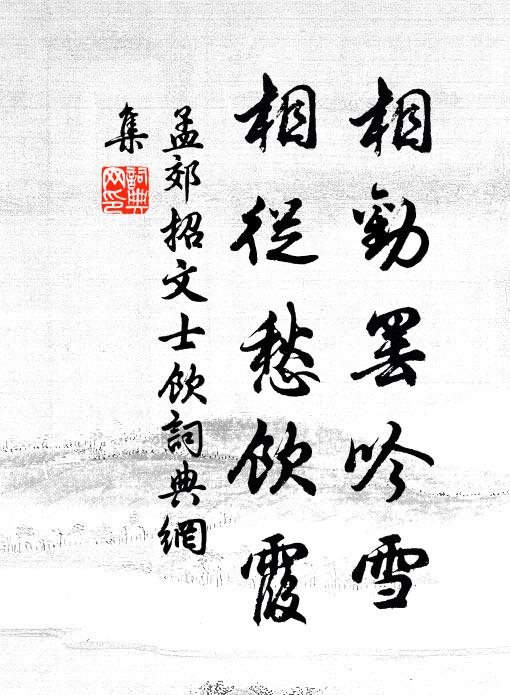 相勸罷吟雪
相從愁飲霞
孟郊招文士飲詞典網
集
詞典網印